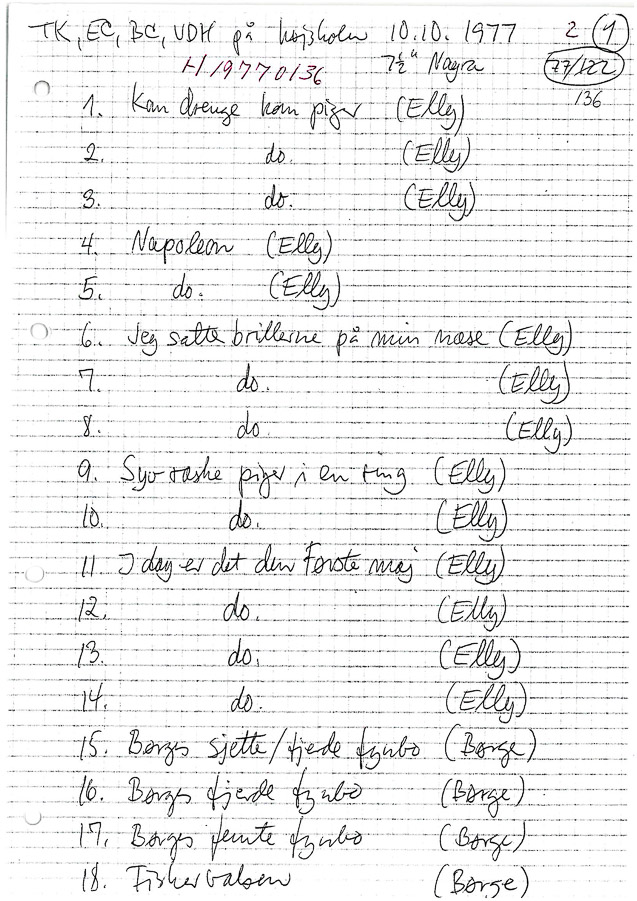 TK, EC, BC, VDH på højskolen 10.10. 1977 2 1
H19770136 7½" Nagra 77/122
136
1. Kom drenge kom piger (Elly)
2. do. (Elly)
3. do. (Elly)
4. Napoleon (Elly)
5. do. (Elly)
6. Jeg satte brillerne på min næse (Elly)
7. do. (Elly)
8. do (Elly)
9. Syv raske piger i en ring (Elly)
10. do. (Elly)
11 I dag er det den Første maj (Elly)
12. do. (Elly)
13. do. (Elly)
14. do. (Elly)
15. Børges sjette/fjede fynbo (Børge)
16. Børges fjerde fynbo (Børge)
17. Børges femte fynbo (Børge)
18. Fiskervalsen (Børge)